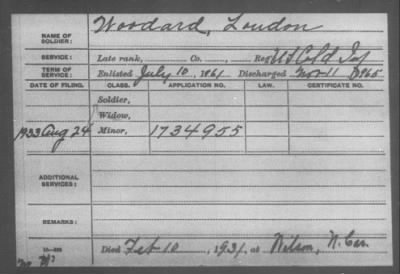 Woodard, London
NAME OF SOLDIER:
SERVICE: Late rank, Co., Reg't US Col'd Inf
TERM OF SERVICE: Enlisted July 10, 1861 Discharged Nov 11, 1865
DATE OF FILING. CLASS. APPLICATION NO. LAW. CERTIFICATE NO.
Soldier,
Widow,
1933 Aug 24 Minor, 1734955
ADDITIONAL SERVICES:
REMARKS:
Died Feb 10, 1931, at Wilson, N. Car.